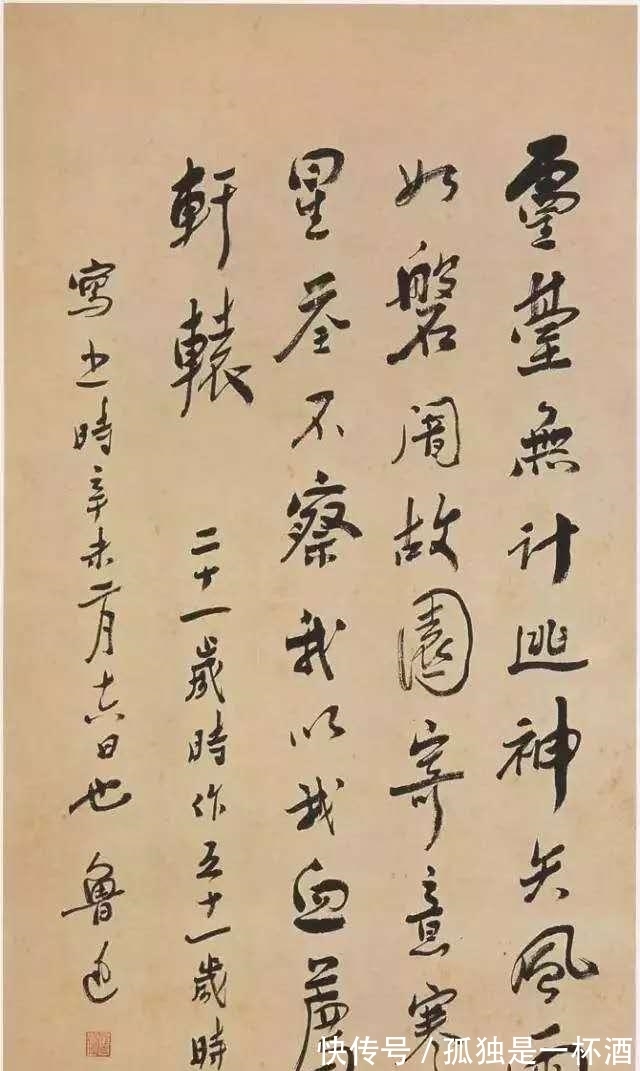 靈臺無計逃神矢風雨
如磐闇故園寄意寒
星荃不察我以我血薦
軒轅 二十一歲時作五十一歲時
寫之時辛未二月十六日也 魯迅
快传号 / 孤独是一杯酒